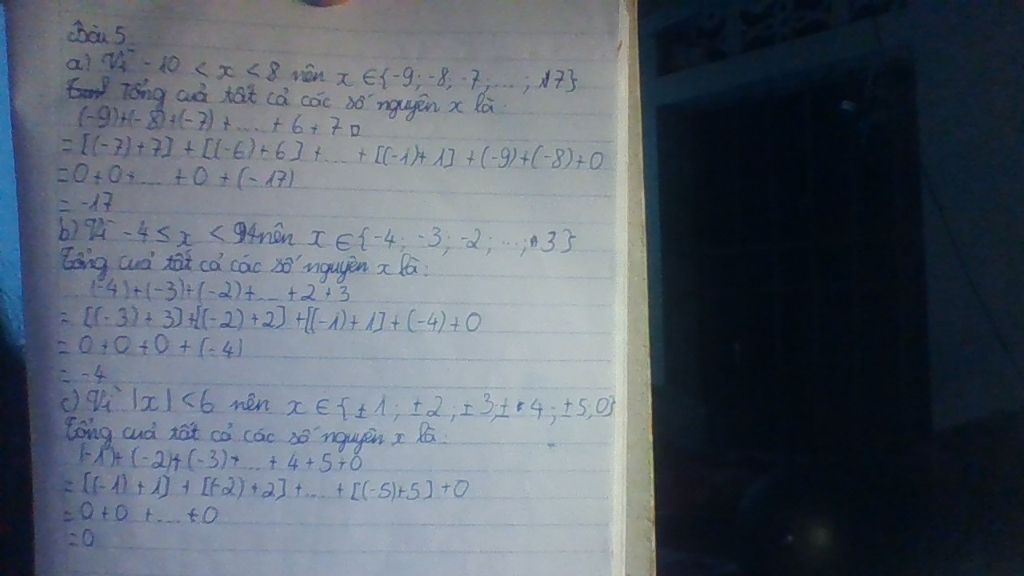 Bài 5
a) Vì -10 < x < 8 nên x ∈ {-9; -8; -7; ...; 7}
Tổng cuả tất cả các số nguyên x là:
(-9)+(-8)+(-7) + .... + 6 + 7
= [(-7)+7] + [(-6)+6] + ... + [(-1)+1] + (-9)+(-8)+0
= 0 + 0 + .... + 0 + (-17)
= -17
b) Vì -4 ≤ x < 4 nên x ∈ {-4; -3; -2; ...; 3}
Tổng cuả tất cả các số nguyên x là:
(-4)+(-3)+(-2)+ ... + 2 + 3
= [(-3)+3]+[(-2)+2]+[(-1)+1]+(-4)+0
= 0 + 0 + 0 + (-4)
= -4
c) Vì |x| < 6 nên x ∈ {±1; ±2; ±3; ±4; ±5; 0}
Tổng cuả tất cả các số nguyên x là:
(-1)+(-2)+(-3)+ ... + 4 + 5 + 0
= [(-1)+1] + [(-2)+2] + ... + [(-5)+5] + 0
= 0 + 0 + ... + 0
= 0